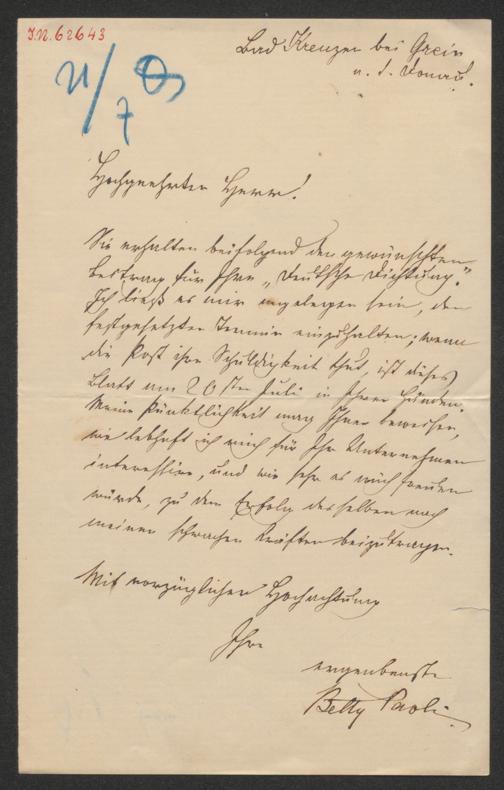 J.N. 62643
Bad Kreuzen bei Grein
a. d. Donau.
21/7
Hochgeehrter Herr!
Sie erhalten beifolgend den gewünschten
Beitrag für Ihre „Deutsche Dichtung".
Ich ließ es mir angelegen sein, den
festgesetzten Termin einzuhalten; wenn
die Post ihre Schuldigkeit thut, ist dieses
Blatt am 20sten Juli in Ihren Händen.
Meine Pünktlichkeit mag Ihnen beweisen,
wie lebhaft ich mich für Ihr Unternehmen
interessire, und wie sehr es mich freuen
würde, zu dem Erfolg desselben nach
meinen schwachen Kräften beizutragen.
Mit vorzüglicher Hochachtung
Ihre
ergebenste
Betty Paoli